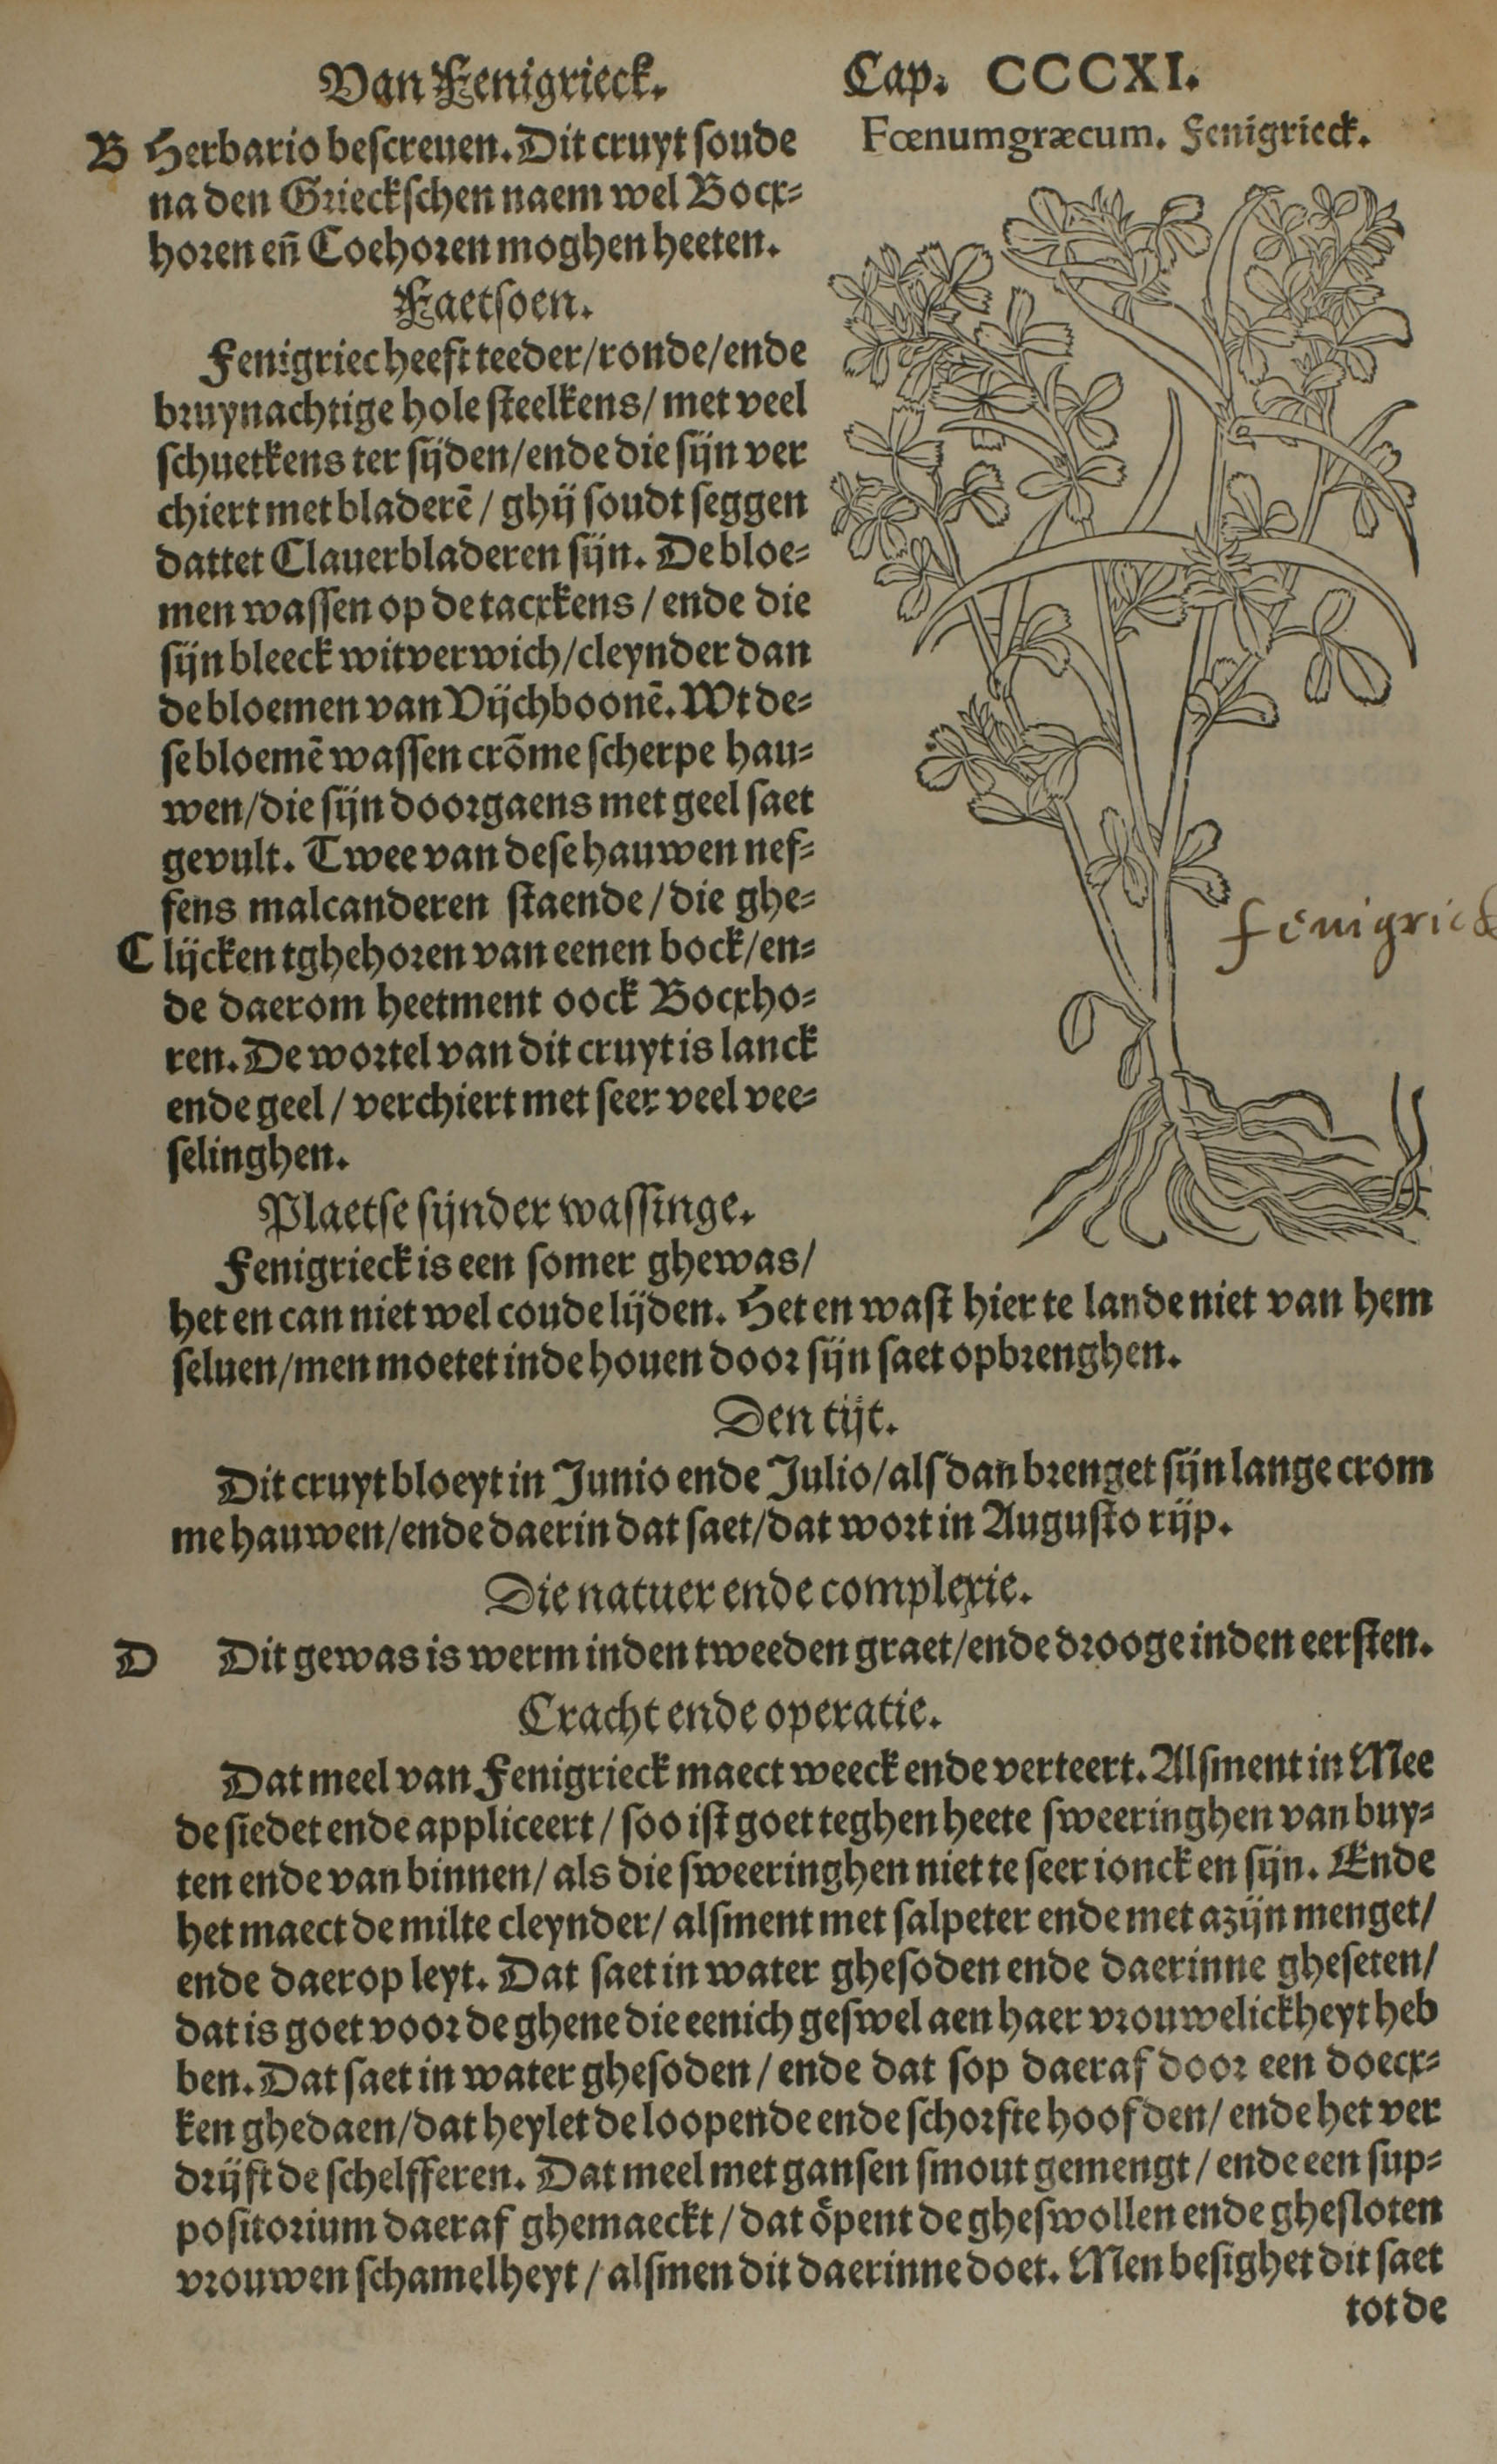 Van Fenigrieck. Cap. CCCXI.
B Herbario bescreuen. Dit cruyt soude
na den Grieckschen naem wel Bocx-
horen eñ Coehoren moghen heeten.
Faetsoen.
Fenigriec heeft teeder/ronde/ende
bruynachtige hole steelkens/ met veel
schuetkens ter sijden/ende die sijn ver
chiert met bladerē / ghij soudt seggen
dattet Clauerbladeren sijn. De bloe-
men wassen op de tacxkens / ende die
sijn bleeck witverwich/cleynder dan
de bloemen van Vijchboonē. Wt de-
se bloemē wassen crōme scherpe hau-
wen/die sijn doorgaens met geel saet
gevult. Twee van dese hauwen nef-
fens malcanderen staende / die ghe-
C lijcken tghehoren van eenen bock/en-
de daerom heetment oock Bocxho-
ren. De wortel van dit cruyt is lanck
ende geel / verchiert met seer veel vee-
selinghen.
Plaetse sijnder wassinge.
Fenigrieck is een somer ghewas/
Fœnumgræcum. Fenigrieck.
fenigrieck
het en can niet wel coude lijden. Het en wast hier te lande niet van hem
seluen/men moetet inde houen door sijn saet opbrenghen.
Den tijt.
Dit cruyt bloeyt in Junio ende Julio/als dañ brenget sijn lange crom
me hauwen/ende daerin dat saet/dat wort in Augusto rijp.
Die natuer ende complexie.
D Dit gewas is werm inden tweeden graet/ende drooge inden eersten.
Cracht ende operatie.
Dat meel van Fenigrieck maect weeck ende verteert. Alsment in Mee
de siedet ende appliceert / soo ist goet teghen heete sweeringhen van buy-
ten ende van binnen/ als die sweeringhen niet te seer ionck en sijn. Ende
het maect de milte cleynder/ alsment met salpeter ende met azijn menget/
ende daerop leyt. Dat saet in water ghesoden ende daerinne gheseten/
dat is goet voor de ghene die eenich geswel aen haer vrouwelickheyt heb
ben. Dat saet in water ghesoden / ende dat sop daeraf door een doecx-
ken ghedaen/dat heylet de loopende ende schorfte hoofden/ ende het ver
drijft de schelfferen. Dat meel met gansen smout gemengt / ende een sup-
positorium daeraf ghemaeckt / dat opent de gheswollen ende ghesloten
vrouwen schamelheyt / alsmen dit daerinne doet. Men besighet dit saet
tot de